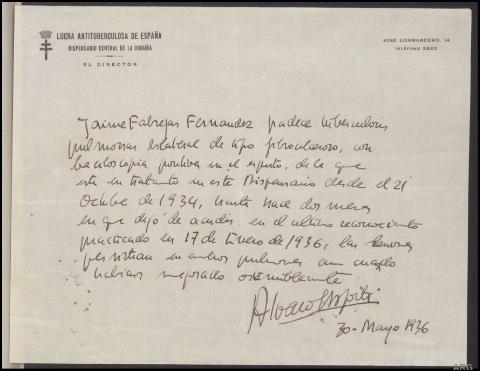 LUCHA ANTITUBERCULOSA DE ESPAÑA
DISPENSARIO CENTRAL DE LA CORUÑA
EL DIRECTOR
JOSÉ LOMBARDERO, 14
TELÉFONO 2820
Jaime Fabregas Fernandez padece tuberculosis
pulmonar bilateral de tipo fibrocaseoso, con
baciloscopia positiva en el esputo, de la que
esta en tratamto en este Dispensario desde el 21
Octubre de 1934, hasta hace dos meses
en que dejó de acudir. en el ultimo reconocimiento
practicado en 17 de Enero de 1936, las lesiones
persistian en ambos pulmones aun cuando
habian mejorado ostensiblemente
Alvaro
30-Mayo 1936
ARG